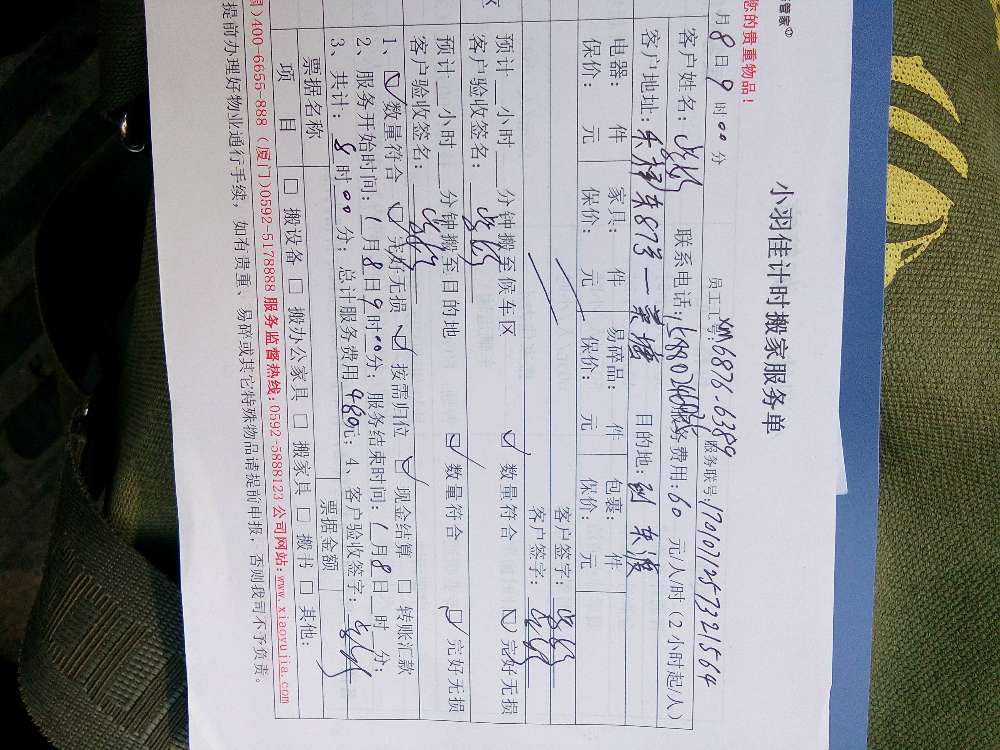 管家
您的贵重物品！
小羽佳计时搬家服务单
员工工号：XM6876-6389 服务联号：1701071257321564
月8日9时00分
客户姓名： 联系电话： 服务费用：60元/人/时（2小时起/人）
客户地址： 东873 目的地：到东渡
电器： 件 家具： 件 易碎品： 件 包裹： 件
保价： 元 保价： 元 保价： 元 保价： 元
客户签字：
客户签字：
区
预计 小时 分钟搬至候车区 数量符合 完好无损
客户验收签名：
预计 小时 分钟搬至目的地 数量符合 完好无损
客户验收签名：
1、 数量符合 完好无损 按需归位 现金结算 转账汇款
2、服务开始时间：1月8日9时00分；服务结束时间：1月8日 时 分；
3、共计：8时00分；总计服务费用480元；4、客户验收签字：
票据名称 票据金额
项 目 搬设备 搬办公家具 搬家具 搬书 其他：
国)400-6655-888（厦门)0592-5178888 服务监督热线：0592-5888123 公司网站：www.xiaoyujia.com
提前办理好物业通行手续，如有贵重、易碎或其它特殊物品请提前申报，否则我司不予负责。